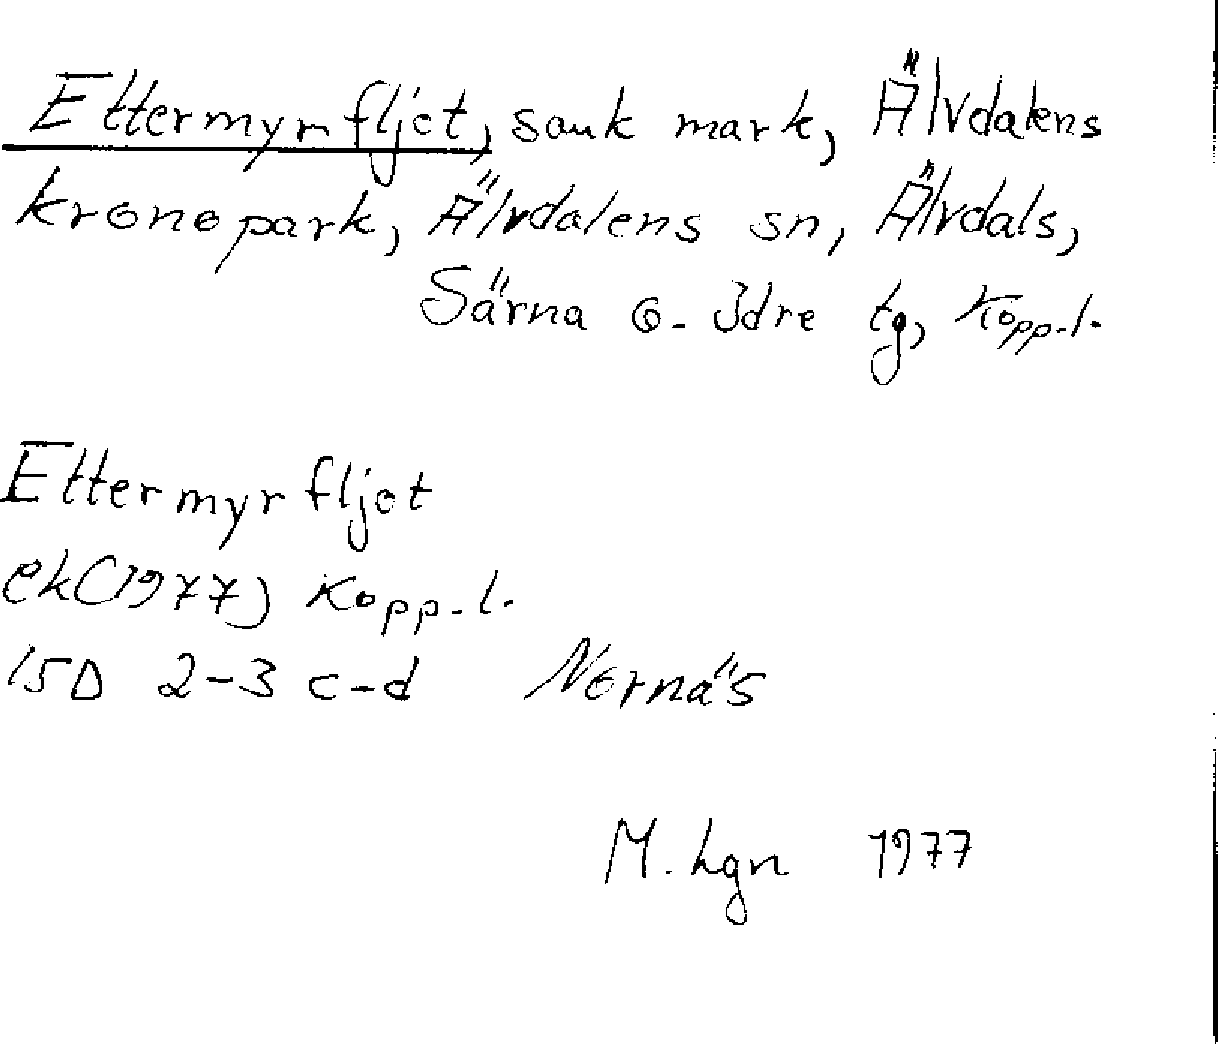 Ettermyrfljot, sank mark, Älvdalens
kronopark, Älvdalens sn, Älvdals,
Särna o. Idre tg, Kopp. l.
Ettermyrfljot
ek (1977) Kopp. l.
15D 2-3 c-d Nornäs
M. Lgn 1977